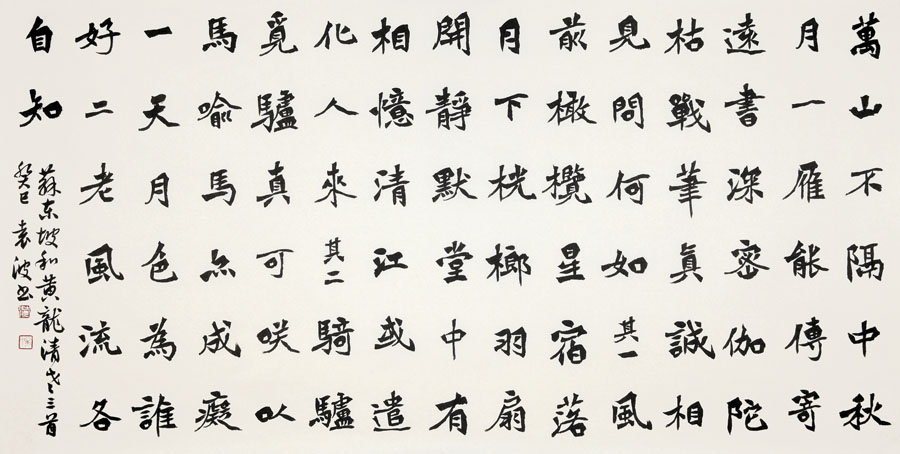 萬山不隔中秋
月一雁能傳寄
遠書深密伽陀
枯戰筆真誠相
見問何如其一風
前橄欖星宿落
月下桄榔羽扇
開靜默堂中有
相憶清江或遣
化人來其二騎驢
覓驢真可咲以
馬喻馬亦成癡
一天月色為誰
好二老風流各
自知
蘇东坡和黄龍清老三首
癸巳袁波书